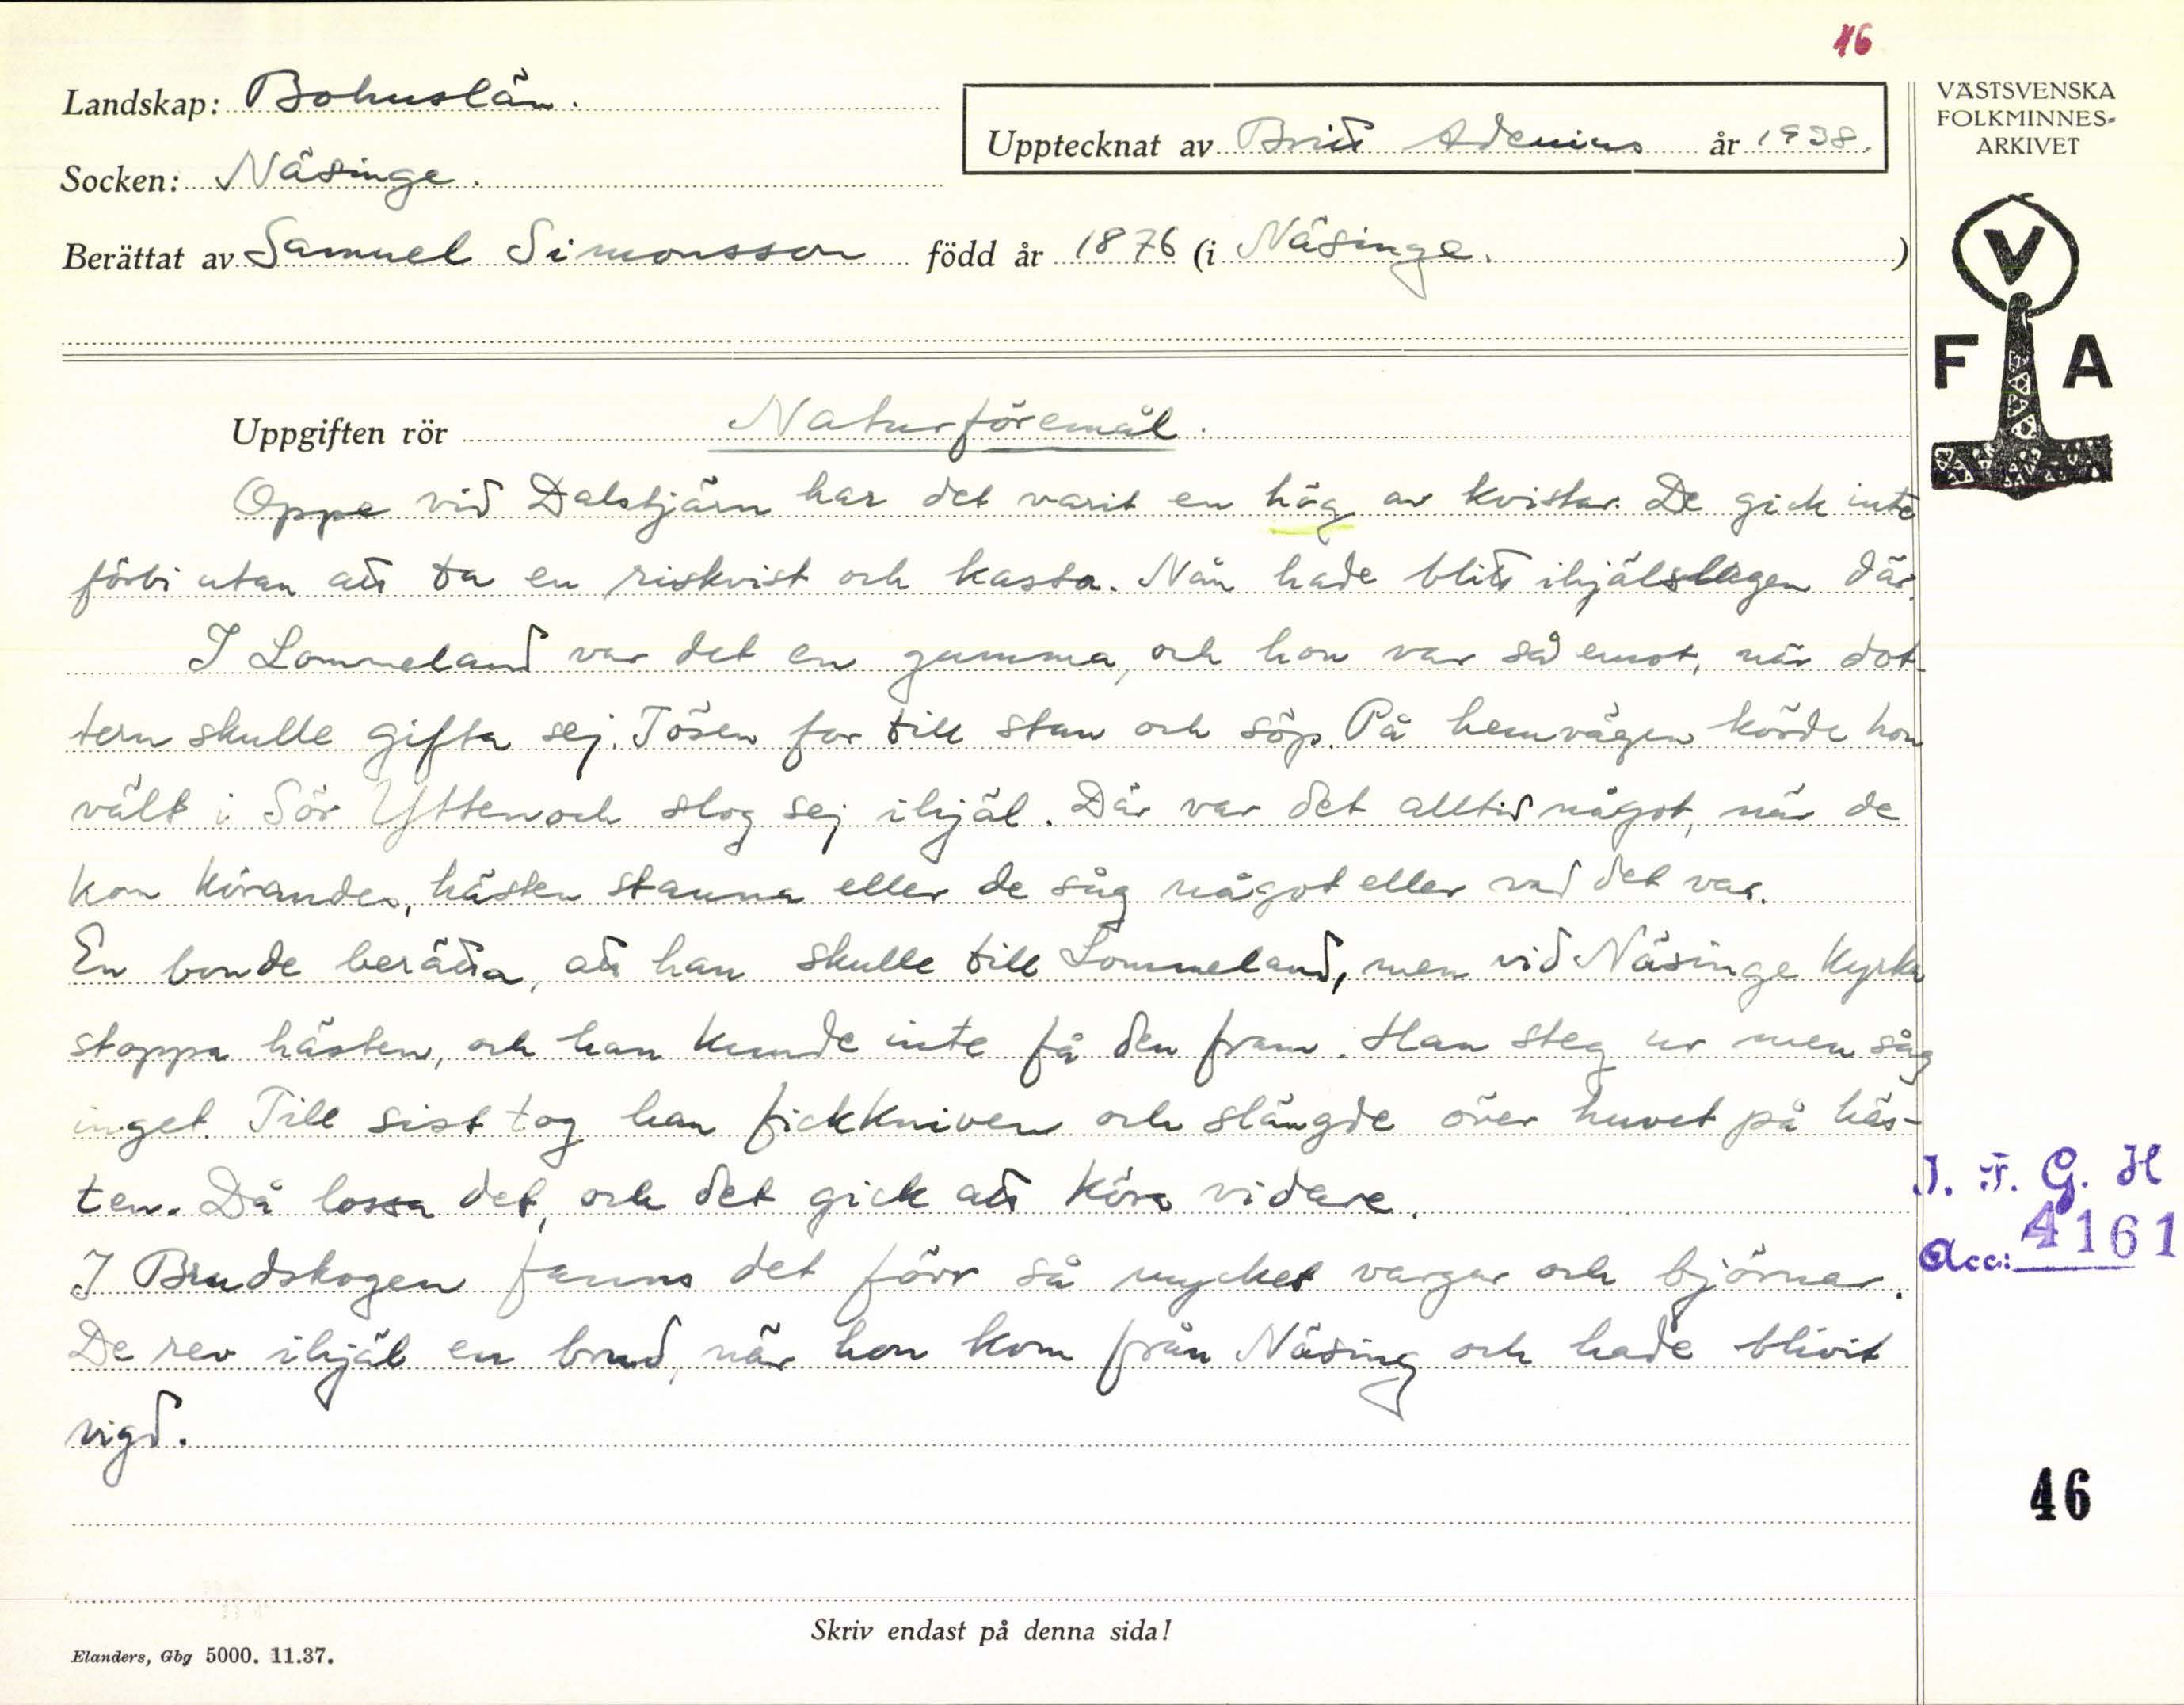 46
Landskap: Bohuslän.
Socken: Näsinge.
Upptecknat av Britt Adenius år 1938.
Berättat av Samuel Simonsson född år 1876 (i Näsinge. )
VÄSTSVENSKA
FOLKMINNES-
ARKIVET
V
F A
Uppgiften rör Naturföremål.
Oppe vid Dalstjärn har det varit en hög av kvistar. De gick inte
förbi utan att ta en riskvist och kasta. Nån hade blitt ihjälslagen där.
I Lommeland var det en gumma, och hon var så emot, när dot-
tern skulle gifta sej. Tösen for till stan och söp. På hemvägen körde hon
vält i Sör Ytten och slog sej ihjäl. Där var det alltid något, när de
kom körandes, hästen stanna eller de såg något eller vad det var.
En bonde berätta, att han skulle till Lommeland, men vid Näsinge kyrka
stoppa hästen, och han kunde inte få den fram. Han steg ur men såg
inget. Till sist tog han fickkniven och slängde över huvet på häs-
ten. Då lossa det, och det gick att köra vidare.
I Brudskogen fanns det förr så mycket vargar och björnar.
De rev ihjäl en brud, när hon kom från Näsing och hade blivit
vigd.
I. F. G. H
Acc: 4161
46
Skriv endast på denna sida!
Elanders, Gbg 5000. 11.37.